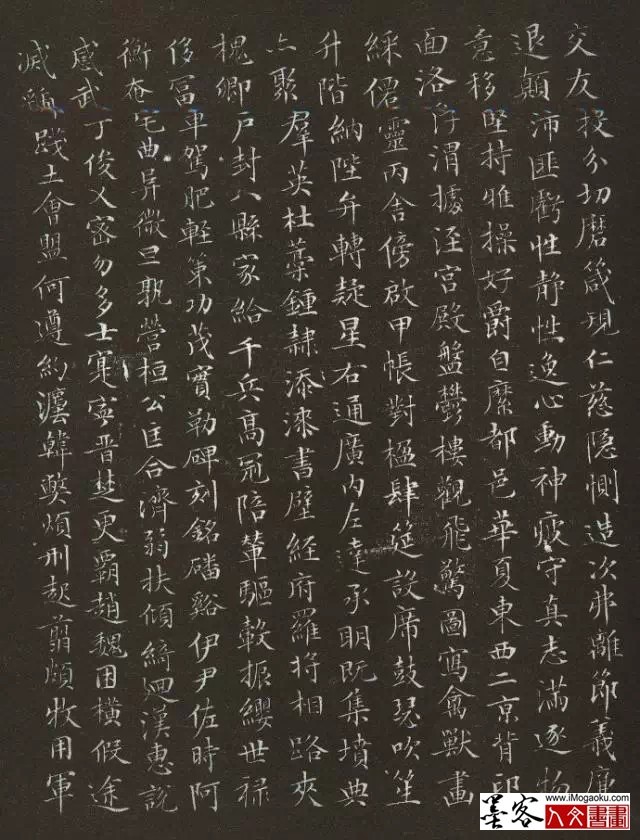 交友投分切磨箴規仁慈隱惻造次弗離節義廉
退顛沛匪虧性静性逸心動神疲守真志滿逐物
意移堅持雅操好爵自縻都邑華夏東西二京背邙
面洛浮渭據涇宮殿盤鬱樓觀飛驚圖寫禽獸畫
綵僊靈丙舍傍啟甲帳對楹肆筵設席鼓瑟吹笙
升階納陛弁轉疑星右通廣內左達承明既集墳典
亦聚羣英杜稾鍾隸添漆書壁經府羅將相路夾
槐卿戶封八縣家給千兵高冠陪輦驅轂振纓世祿
侈富車駕肥輕策功茂實勒碑刻銘磻谿伊尹佐時阿
衡奄宅曲阜微旦孰營桓公匡合濟弱扶傾綺迴漢惠說
感武丁俊乂密勿多士寔寧晉楚更霸趙魏困橫假途
滅虢踐土會盟何遵約灋韓弊煩刑起翦頗牧用軍
墨客
www.iMogaoku.com
人文書畫